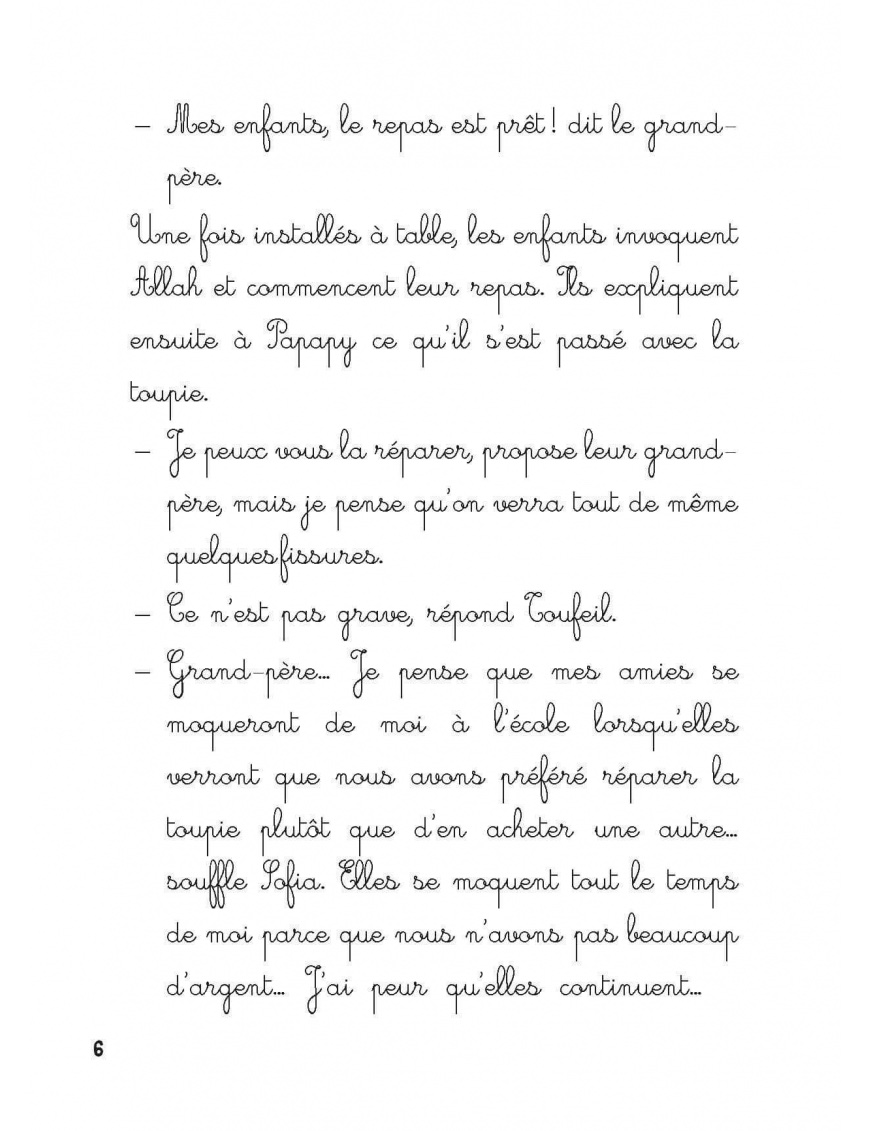 – Mes enfants, le repas est prêt ! dit le grand-
père.
Une fois installés à table, les enfants invoquent
Allah et commencent leur repas. Ils expliquent
ensuite à Papapy ce qu'il s'est passé avec la
toupie.
– Je peux vous la réparer, propose leur grand-
père, mais je pense qu'on verra tout de même
quelques fissures.
– Ce n'est pas grave, répond Toufeil.
– Grand-père... Je pense que mes amies se
moqueront de moi à l'école lorsqu'elles
verront que nous avons préféré réparer la
toupie plutôt que d'en acheter une autre...
souffle Sofia. Elles se moquent tout le temps
de moi parce que nous n'avons pas beaucoup
d'argent... J'ai peur qu'elles continuent...
6